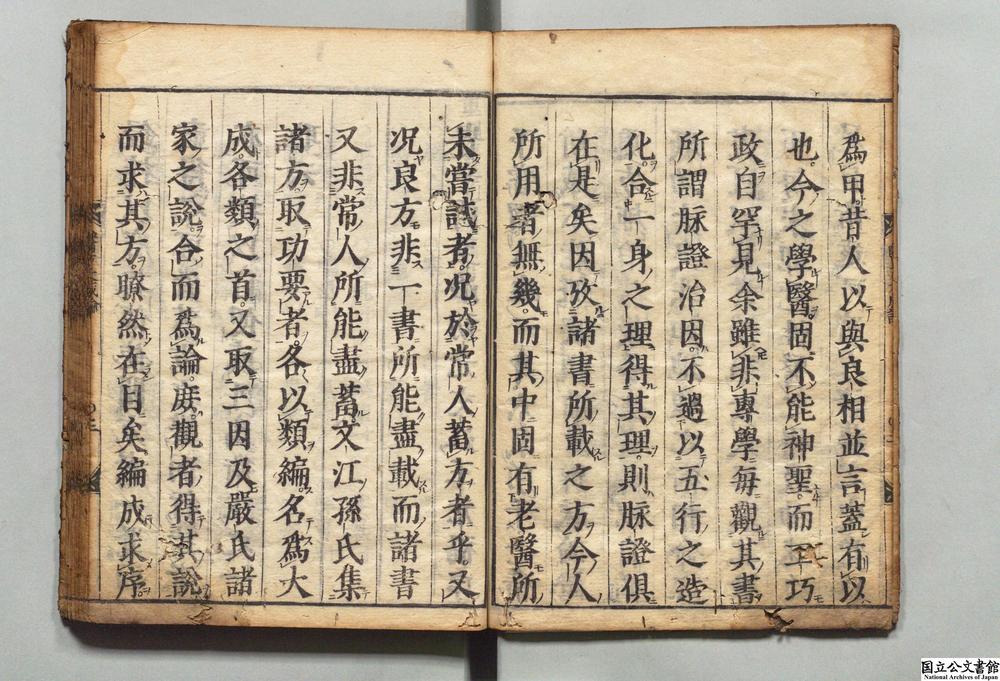 爲甲昔人以與良相並言蓋有以
也今之學醫固不能神聖而工巧
政自罕見余雖非專學毎觀其書
所謂脉證治因不過以五行之造
化合一身之理得其理則脉證俱
在是矣因攷諸書所載之方今人
所用者無幾而其中固有老醫所
未嘗試者况於常人蓄方者乎又
况良方非一書所能盡載而諸書
又非常人所能盡蓄文江孫氏集
諸方取功要者各以類編名爲大
成各類之首又取三因及嚴氏諸
家之說合而爲論庻觀者得其說
而求其方瞭然在目矣編成求序
国立公文書館
National Archives of Japan